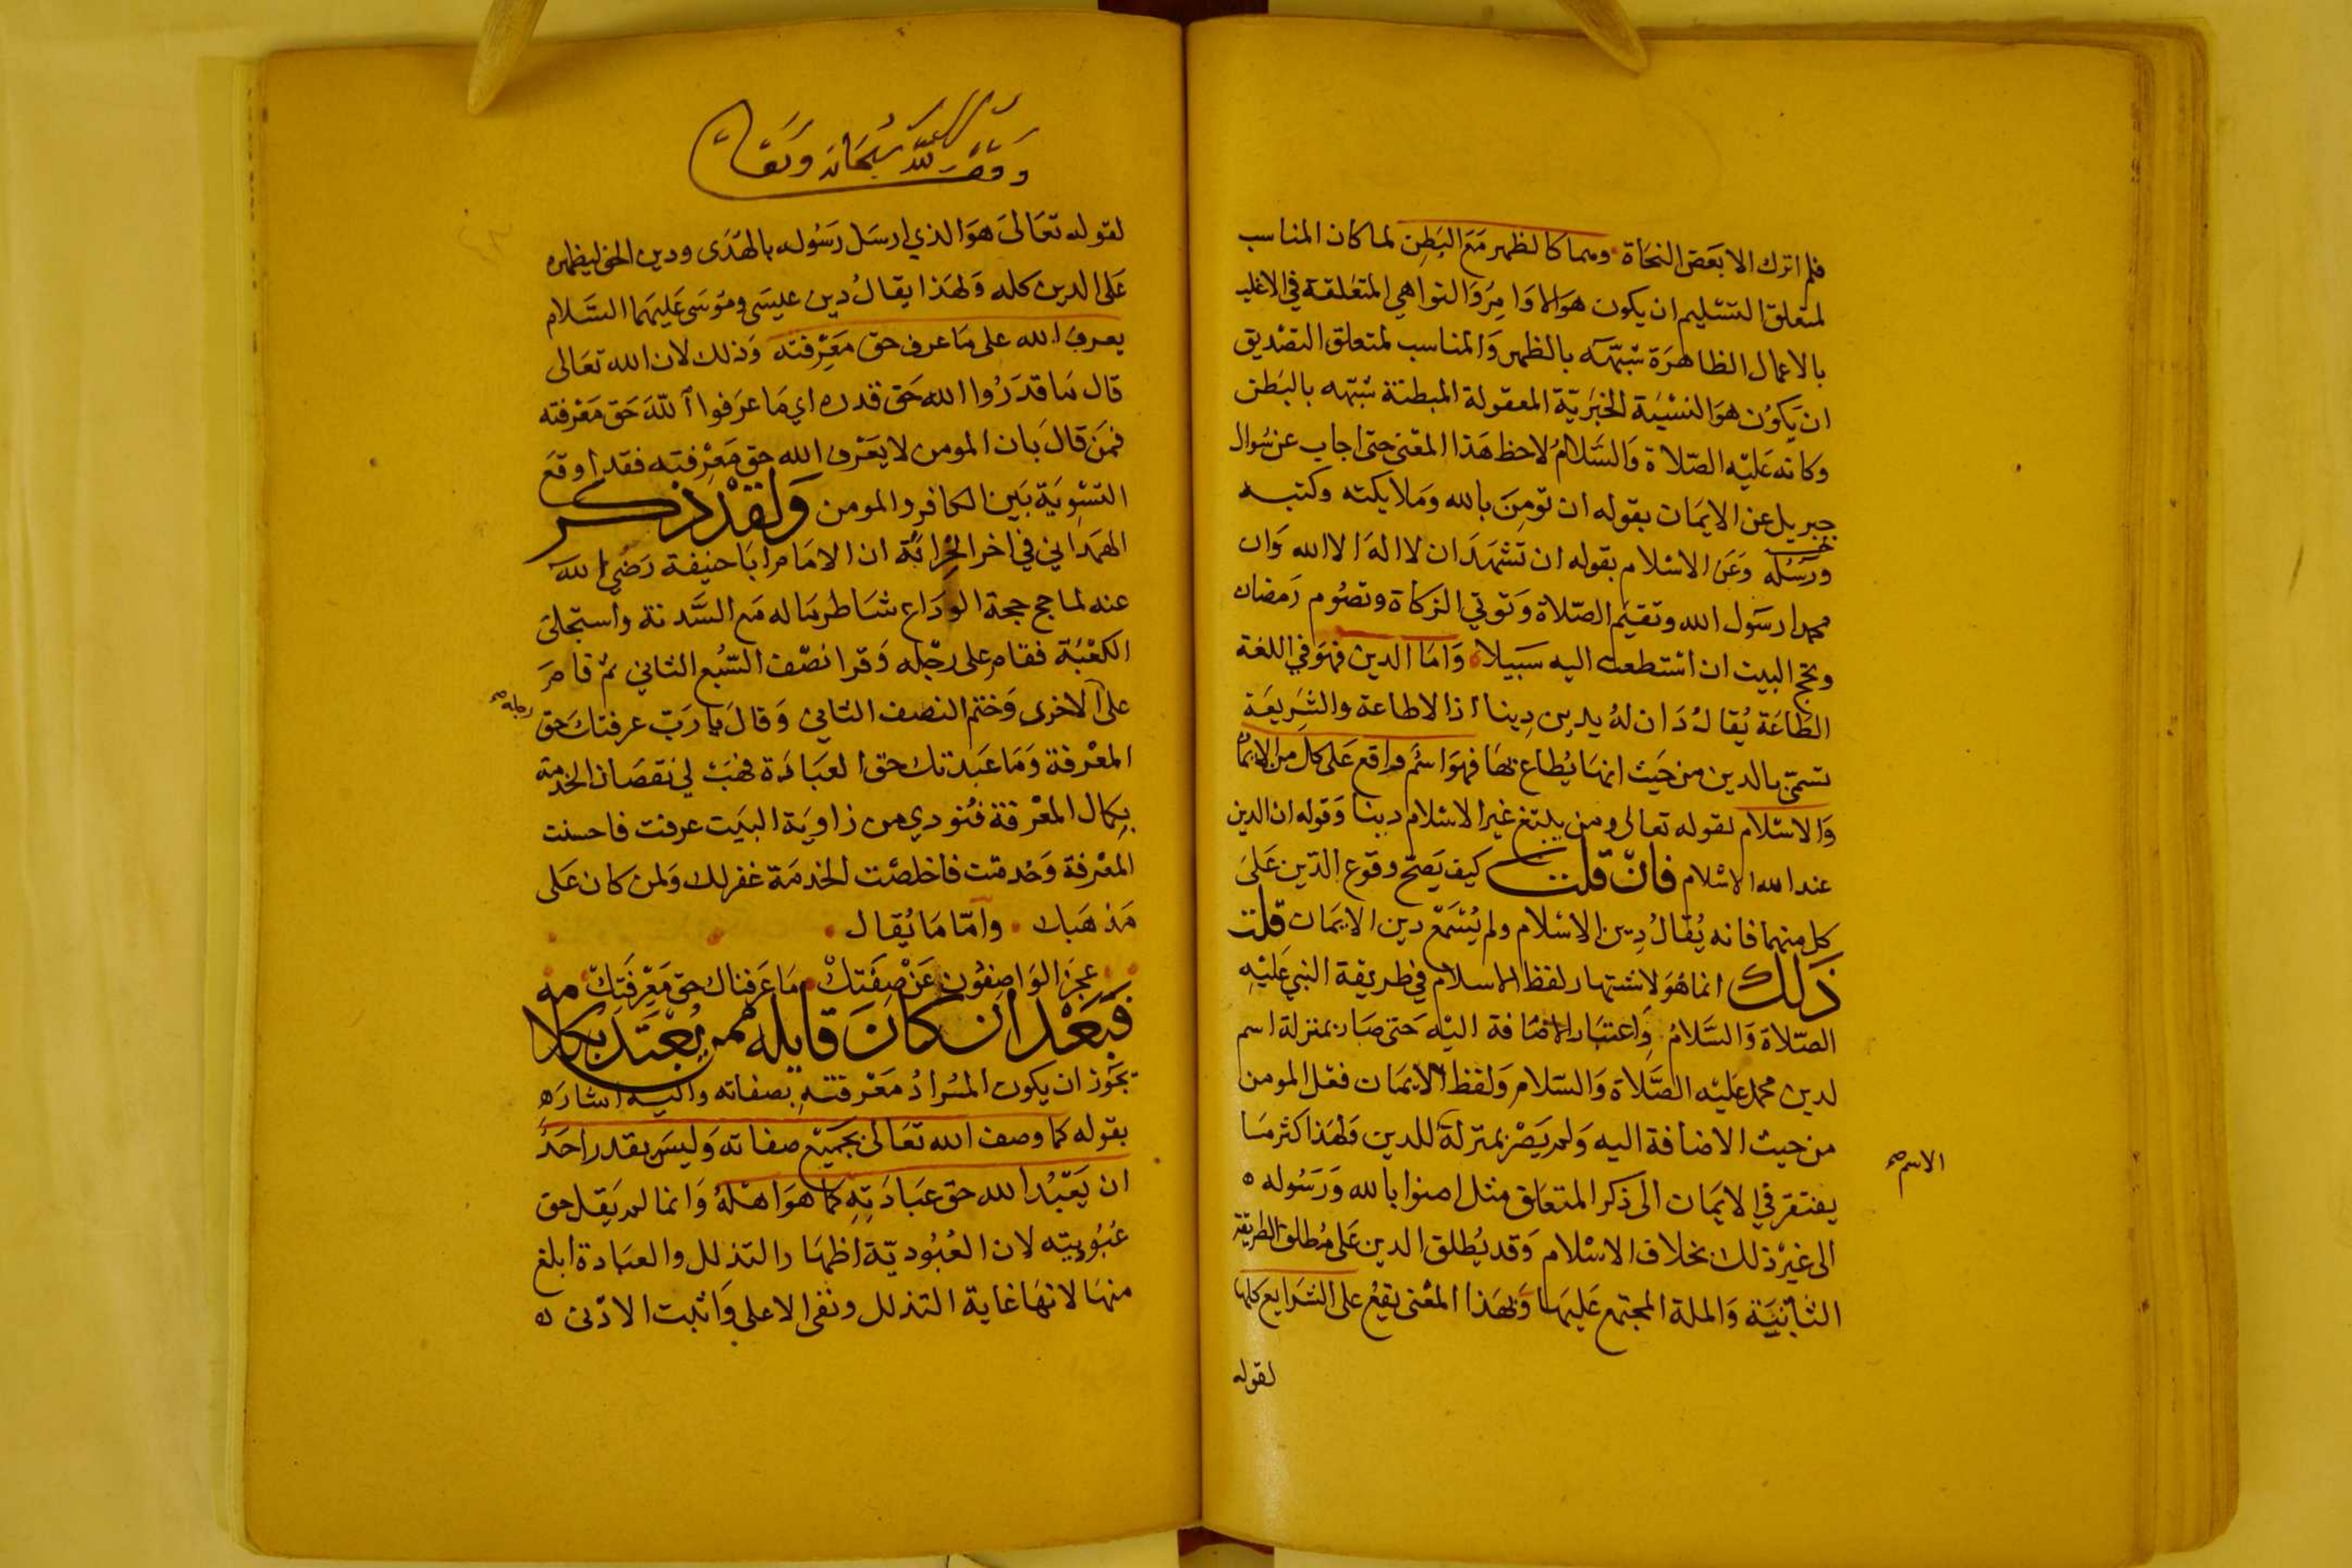 فلم اترك الا بعض النجاة وهما كالظهر مع البطن لما كان المناسب
لمتعلق التسليم ان يكون هو الاوامر والنواهي المتعلقة في الاغلب
بالاعمال الظاهرة شبهه بالظهر والمناسب لمتعلق التصديق
ان يكون هو النسبة الخبرية المعقولة المبطنة شبهه بالبطن
وكانه عليه الصلاة والسلام لاحظ هذا المعنى حتى اجاب عن سوال
جبريل عن الايمان بقوله ان تومن بالله وملايكته وكتبه
ورسله وعن الاسلام بقوله ان تشهد ان لا اله الا الله وان
محمدا رسول الله وتقيم الصلاة وتوتي الزكاة وتصوم رمضان
وتحج البيت ان استطعت اليه سبيلا واما الدين فهو في اللغة
الطاعة يقال دان له يدين دينا اذا اطاعة والشريعة
تسمى بالدين من حيث انها يطاع بها فهو اسم واقع على كل من الايمان
والاسلام لقوله تعالى ومن يبتغ غير الاسلام دينا وقوله ان الدين
عند الله الاسلام فان قلت كيف يصح وقوع الدين على
كل منهما فانه يقال دين الاسلام ولم يسمع دين الايمان قلت
ذلك انما هو لاشتهار لفظ الاسلام في طريقة النبي عليه
الصلاة والسلام واعتبار الاضافة اليه حتى صار بمنزلة اسم
لدين محمد عليه الصلاة والسلام ولفظ الايمان فعل المومن
من حيث الاضافة اليه ولم يصر بمنزلة للدين ولهذا كثر ما
الاسم صح
يفتقر في الايمان الى ذكر المتعلق مثل امنوا بالله ورسوله
الى غير ذلك بخلاف الاسلام وقد يطلق الدين على مطلق الطريقة
الثابتة والملة المجتمع عليها وبهذا المعنى يقع على الشرايع كلها
لقوله
وقف لله سبحانه وتعالى
لقوله تعالى هو الذي ارسل رسوله بالهدى ودين الحق ليظهره
على الدين كله ولهذا يقال دين عيسى وموسى عليهما السلام
يعرف الله على ما عرف حق معرفته وذلك لان الله تعالى
قال ما قدروا الله حق قدره اي ما عرفوا الله حق معرفته
فمن قال بان المومن لا يعرف الله حق معرفته فقد اوقع
التسوية بين الكافر والمومن ولقد ذكر
الهمداني في اخر الخزانة ان الامام ابا حنيفة رضي الله
عنه لما حج حجة الوداع شاطر ماله مع السدنة واستجلى
الكعبة فقام على رجله وقرا نصف السبع الثاني ثم قام
على الاخرى وختم النصف الثاني وقال يا رب عرفتك حق
رجله صح
المعرفة وما عبدتك حق العبادة فهب لي نقصان الخدمة
بكمال المعرفة فنودي من زاوية البيت عرفت فاحسنت
المعرفة وخدمت فاخلصت الخدمة غفر لك ولمن كان على
مذهبك واما ما يقال
عجز الواصفون عن صفتك ما عرفناك حق معرفتك
فبعد ان كان قايله ممن يعتد بكلامه
تجوز ان يكون المراد معرفته بصفاته واليه اشاره
بقوله كما وصف الله تعالى بجميع صفاته وليس يقدر احد
ان يعبد الله حق عبادته كما هو اهله وانما لم يقل حق
عبوديته لان العبودية اظهار التذلل والعبادة ابلغ
منها لانها غاية التذلل ونفى الاعلى واثبت الادنى